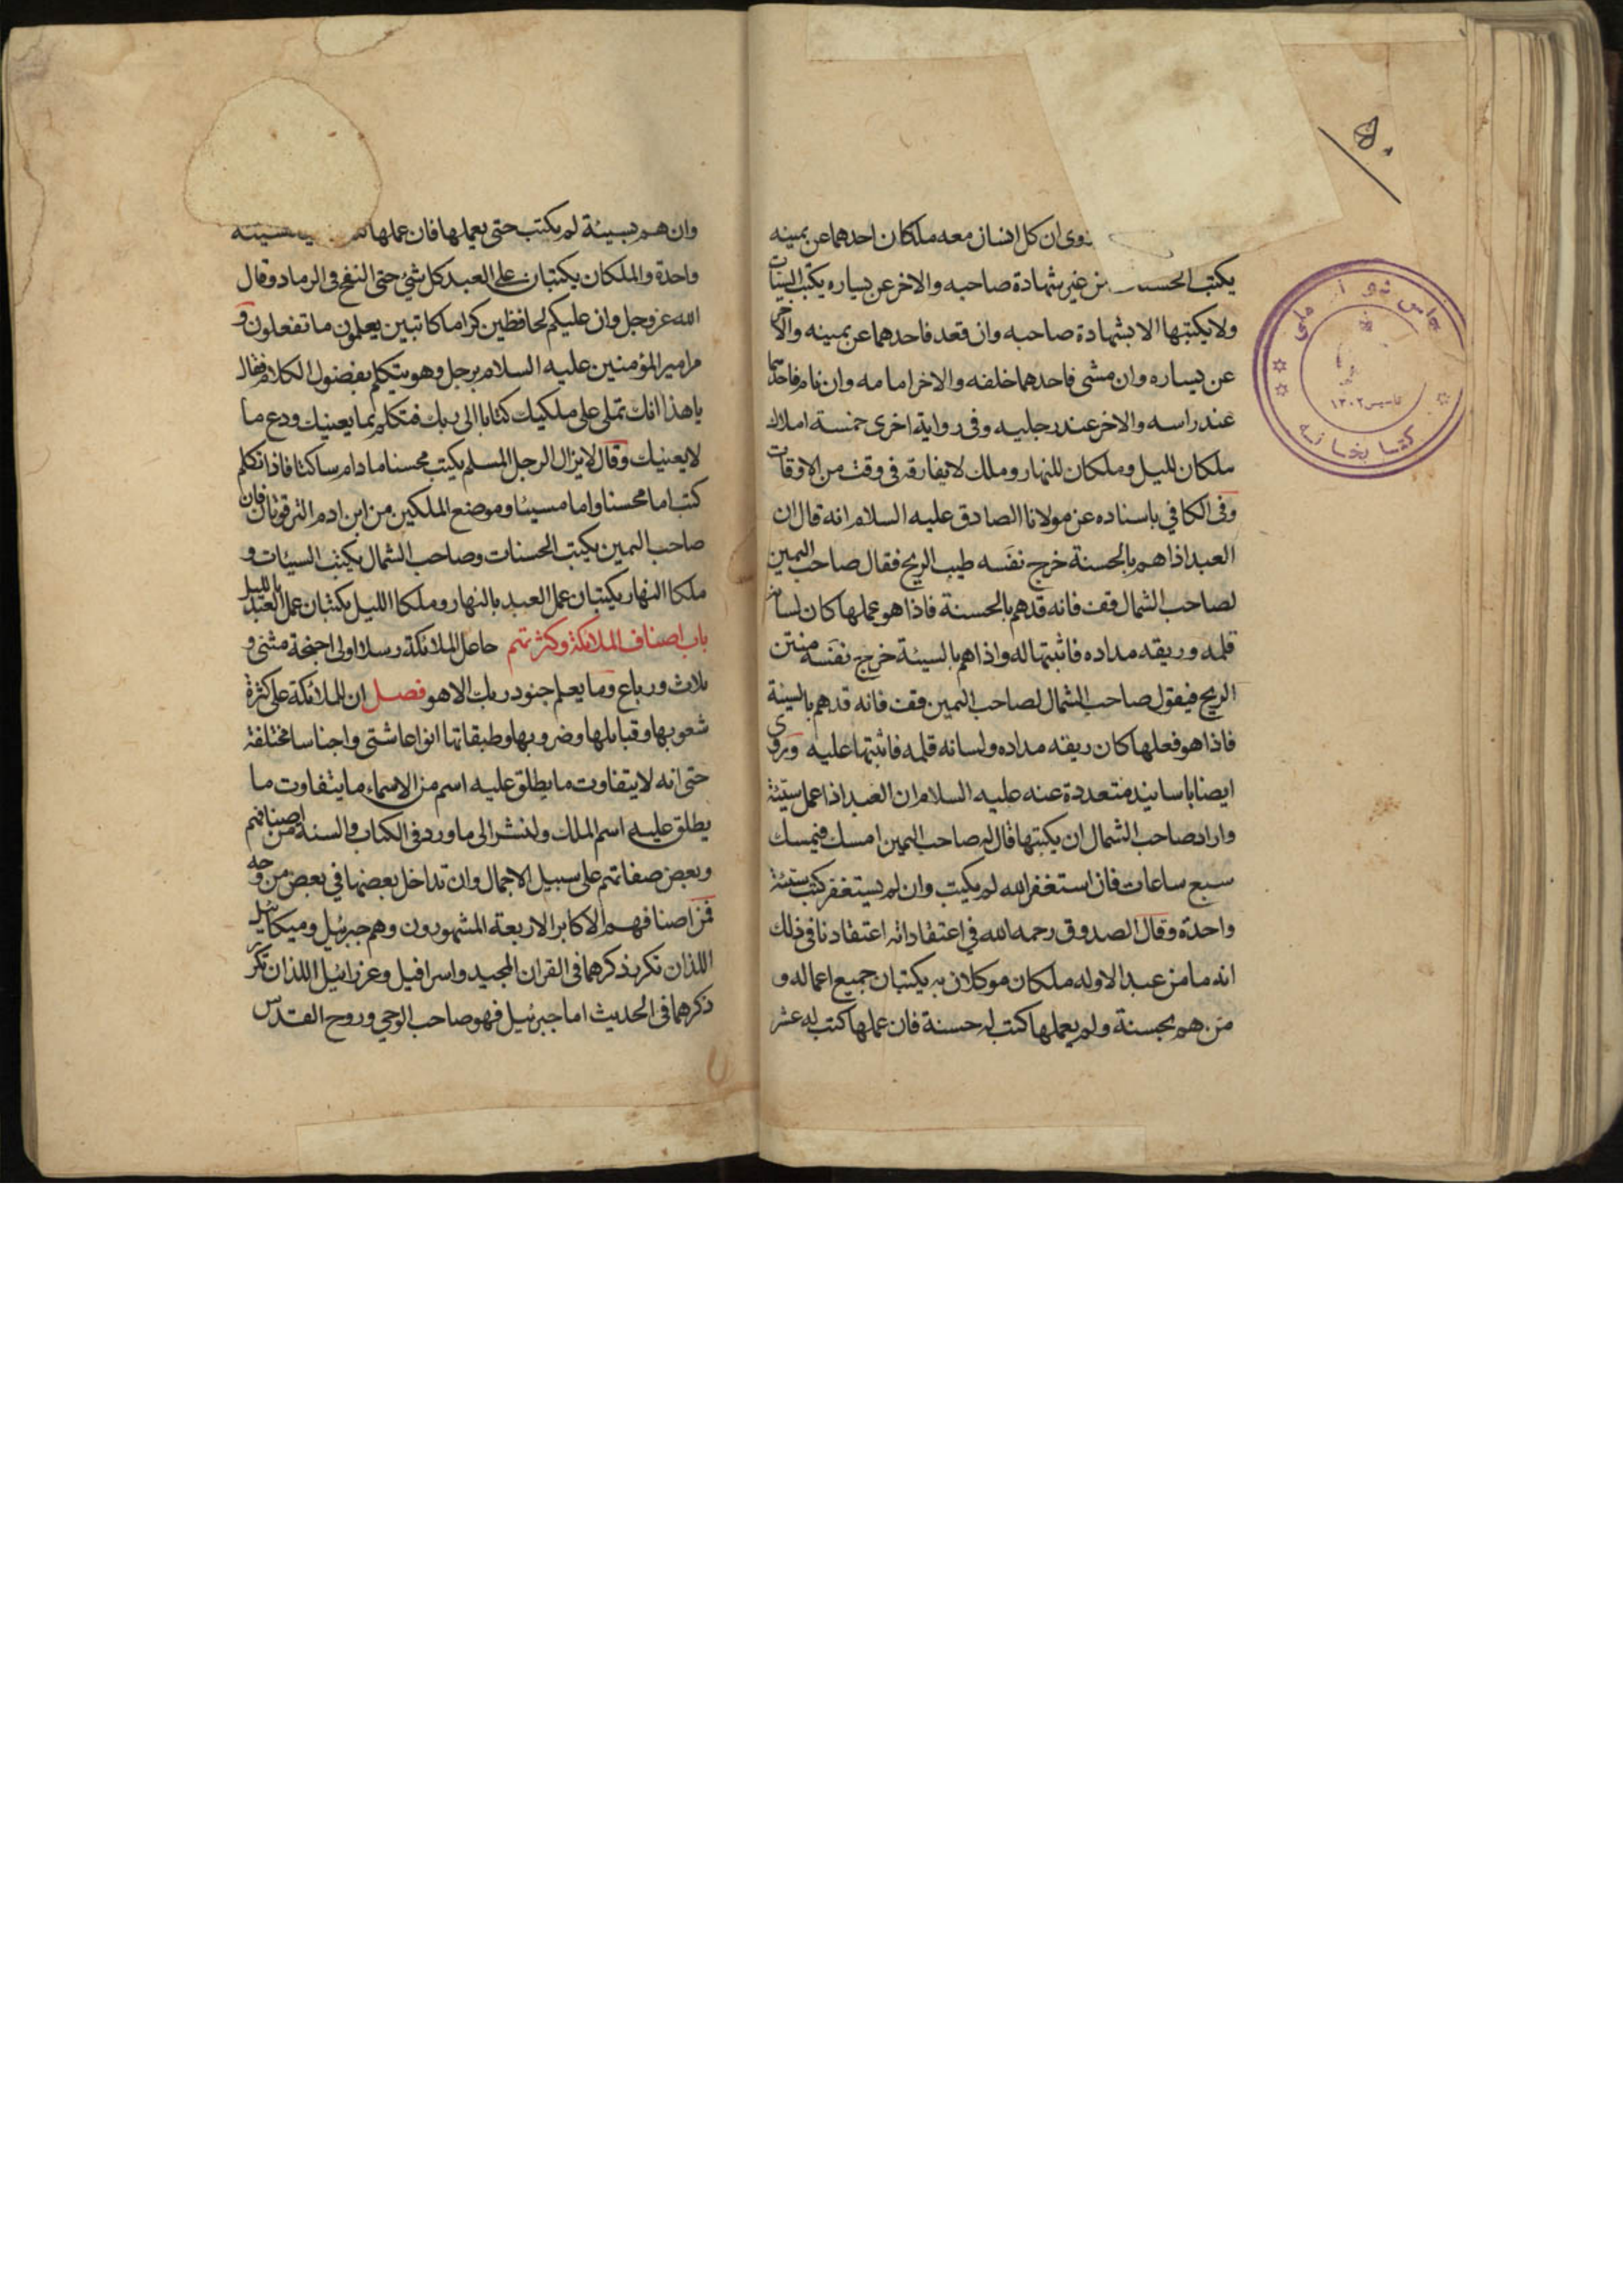 ٥٠
روی ان کل انسان معه ملکان احدهما عن یمینه
یکتب الحسنات من غیر شهادة صاحبه والاخر عن یساره یکتب السیئات
ولا یکتبها الا بشهادة صاحبه وان قعد فاحدهما عن یمینه والاخر
عن یساره وان مشی فاحدهما خلفه والاخر امامه وان نام فاحدهما
عند راسه والاخر عند رجلیه وفی روایة اخری خمسة املاک
ملکان للیل وملکان للنهار وملک لا یفارقه فی وقت من الاوقات
وفی الکافی باسناده عن مولانا الصادق علیه السلام انه قال ان
العبد اذا هم بالحسنة خرج نفَسه طیب الریح فقال صاحب الیمین
لصاحب الشمال قف فانه قد هم بالحسنة فاذا هو عملها کان لسانه
قلمه وریقه مداده فاثبتها له واذا هم بالسیئة خرج نفَسه منتن
الریح فیقول صاحب الشمال لصاحب الیمین قف فانه قد هم بالسیئة
فاذا هو فعلها کان ریقه مداده ولسانه قلمه فاثبتها علیه وروی
ایضا باسانید متعددة عنه علیه السلام ان العبد اذا عمل سیئة
واراد صاحب الشمال ان یکتبها قال له صاحب الیمین امسک فیمسک
سبع ساعات فان استغفر الله لم یکتب وان لم یستغفر کتب سیئة
واحدة وقال الصدوق رحمه الله فی اعتقاداته اعتقادنا فی ذلک
انه ما من عبد الا وله ملکان موکلان به یکتبان جمیع اعماله و
من هم بحسنة ولم یعملها کتب له حسنة فان عملها کتب له عشر
وان هم بسیئة لم یکتب حتی یعملها فان عملها سیئة
واحدة والملکان یکتبان علی العبد کل شیٔ حتی النفخ فی الرماد وقال
الله عز وجل وان علیکم لحافظین کراما کاتبین یعلمون ما تفعلون و
مر امیر المؤمنین علیه السلام برجل وهو یتکلم بفضول الکلام فقال
یا هذا انک تملی علی ملکیک کتابا الی ربک فتکلم بما یعنیک ودع ما
لا یعنیک وقال لا یزال الرجل المسلم یکتب محسنا ما دام ساکتا فاذا تکلم
کتب اما محسنا واما مسیئا وموضع الملکین من ابن ادم الترقوتان فان
صاحب الیمین یکتب الحسنات وصاحب الشمال یکتب السیئات و
ملکا النهار یکتبان عمل العبد بالنهار وملکا اللیل یکتبان عمل العبد باللیل
باب اصناف الملائکة وکثرتهم جاعل الملائکة رسلا اولی اجنحة مثنی و
ثلاث ورباع وما یعلم جنود ربک الا هو فصل ان الملائکة علی کثرة
شعوبها وقبایلها وضروبها وطبقاتها انواعا شتی واجناسا مختلفة
حتی انه لا یتفاوت ما یطلق علیه اسم من الاسماء ما یتفاوت ما
یطلق علیه اسم الملک ولنشر الی ما ورد فی الکتاب والسنة من اصنافهم
وبعض صفاتهم علی سبیل الاجمال وان تداخل بعضها فی بعض من وجه
فمن اصنافهم الاکابر الاربعة المشهورون وهم جبرئیل ومیکائیل
اللذان تکرر ذکرهما فی القران المجید واسرافیل وعزرائیل اللذان تکرر
ذکرهما فی الحدیث اما جبرئیل فهو صاحب الوحی وروح القدس
کتابخانه
تاسیس ١٣٠٢